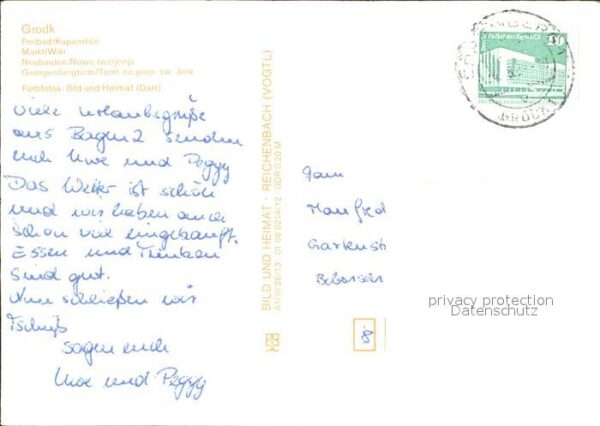 Grodk
Freibad/Kupanišćo
Markt/Wiki
Neubauten/Nowe twarjenja
Georgenbergturm/Torm na gorje sw. Jura
Farbfotos: Bild und Heimat (Darr)
Viele Urlaubsgrüße
aus senden
euch Uwe und Peggy
Das Wetter ist schön
und wir haben auch
schon viel eingekauft.
Essen und Trinken
sind gut.
Nun schließen wir
Tschüß
sagen euch
Uwe und Peggy
BILD UND HEIMAT · REICHENBACH (VOGTL)
A1/III/26/13 01 06 0214/12 DDR 0,20 M
Fam
Manfred
Gartenstr
privacy protection
Datenschutz